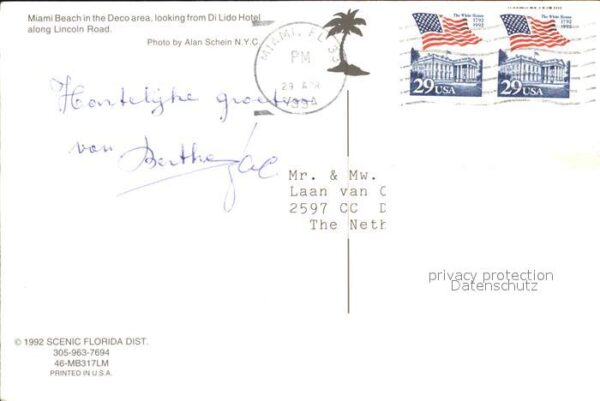 Miami Beach in the Deco area, looking from Di Lido Hotel
along Lincoln Road.
Photo by Alan Schein N.Y.C.
MIAMI, FL 33
PM
29 APR
1994
The White House
1792
1992
29 USA
The White House
1792
1992
29 USA
Hartelijke groeten
van Berthe
Mr. & Mw.
Laan van
2597 CC D
The Neth
privacy protection
Datenschutz
© 1992 SCENIC FLORIDA DIST.
305-963-7694
46-MB317LM
PRINTED IN U.S.A.